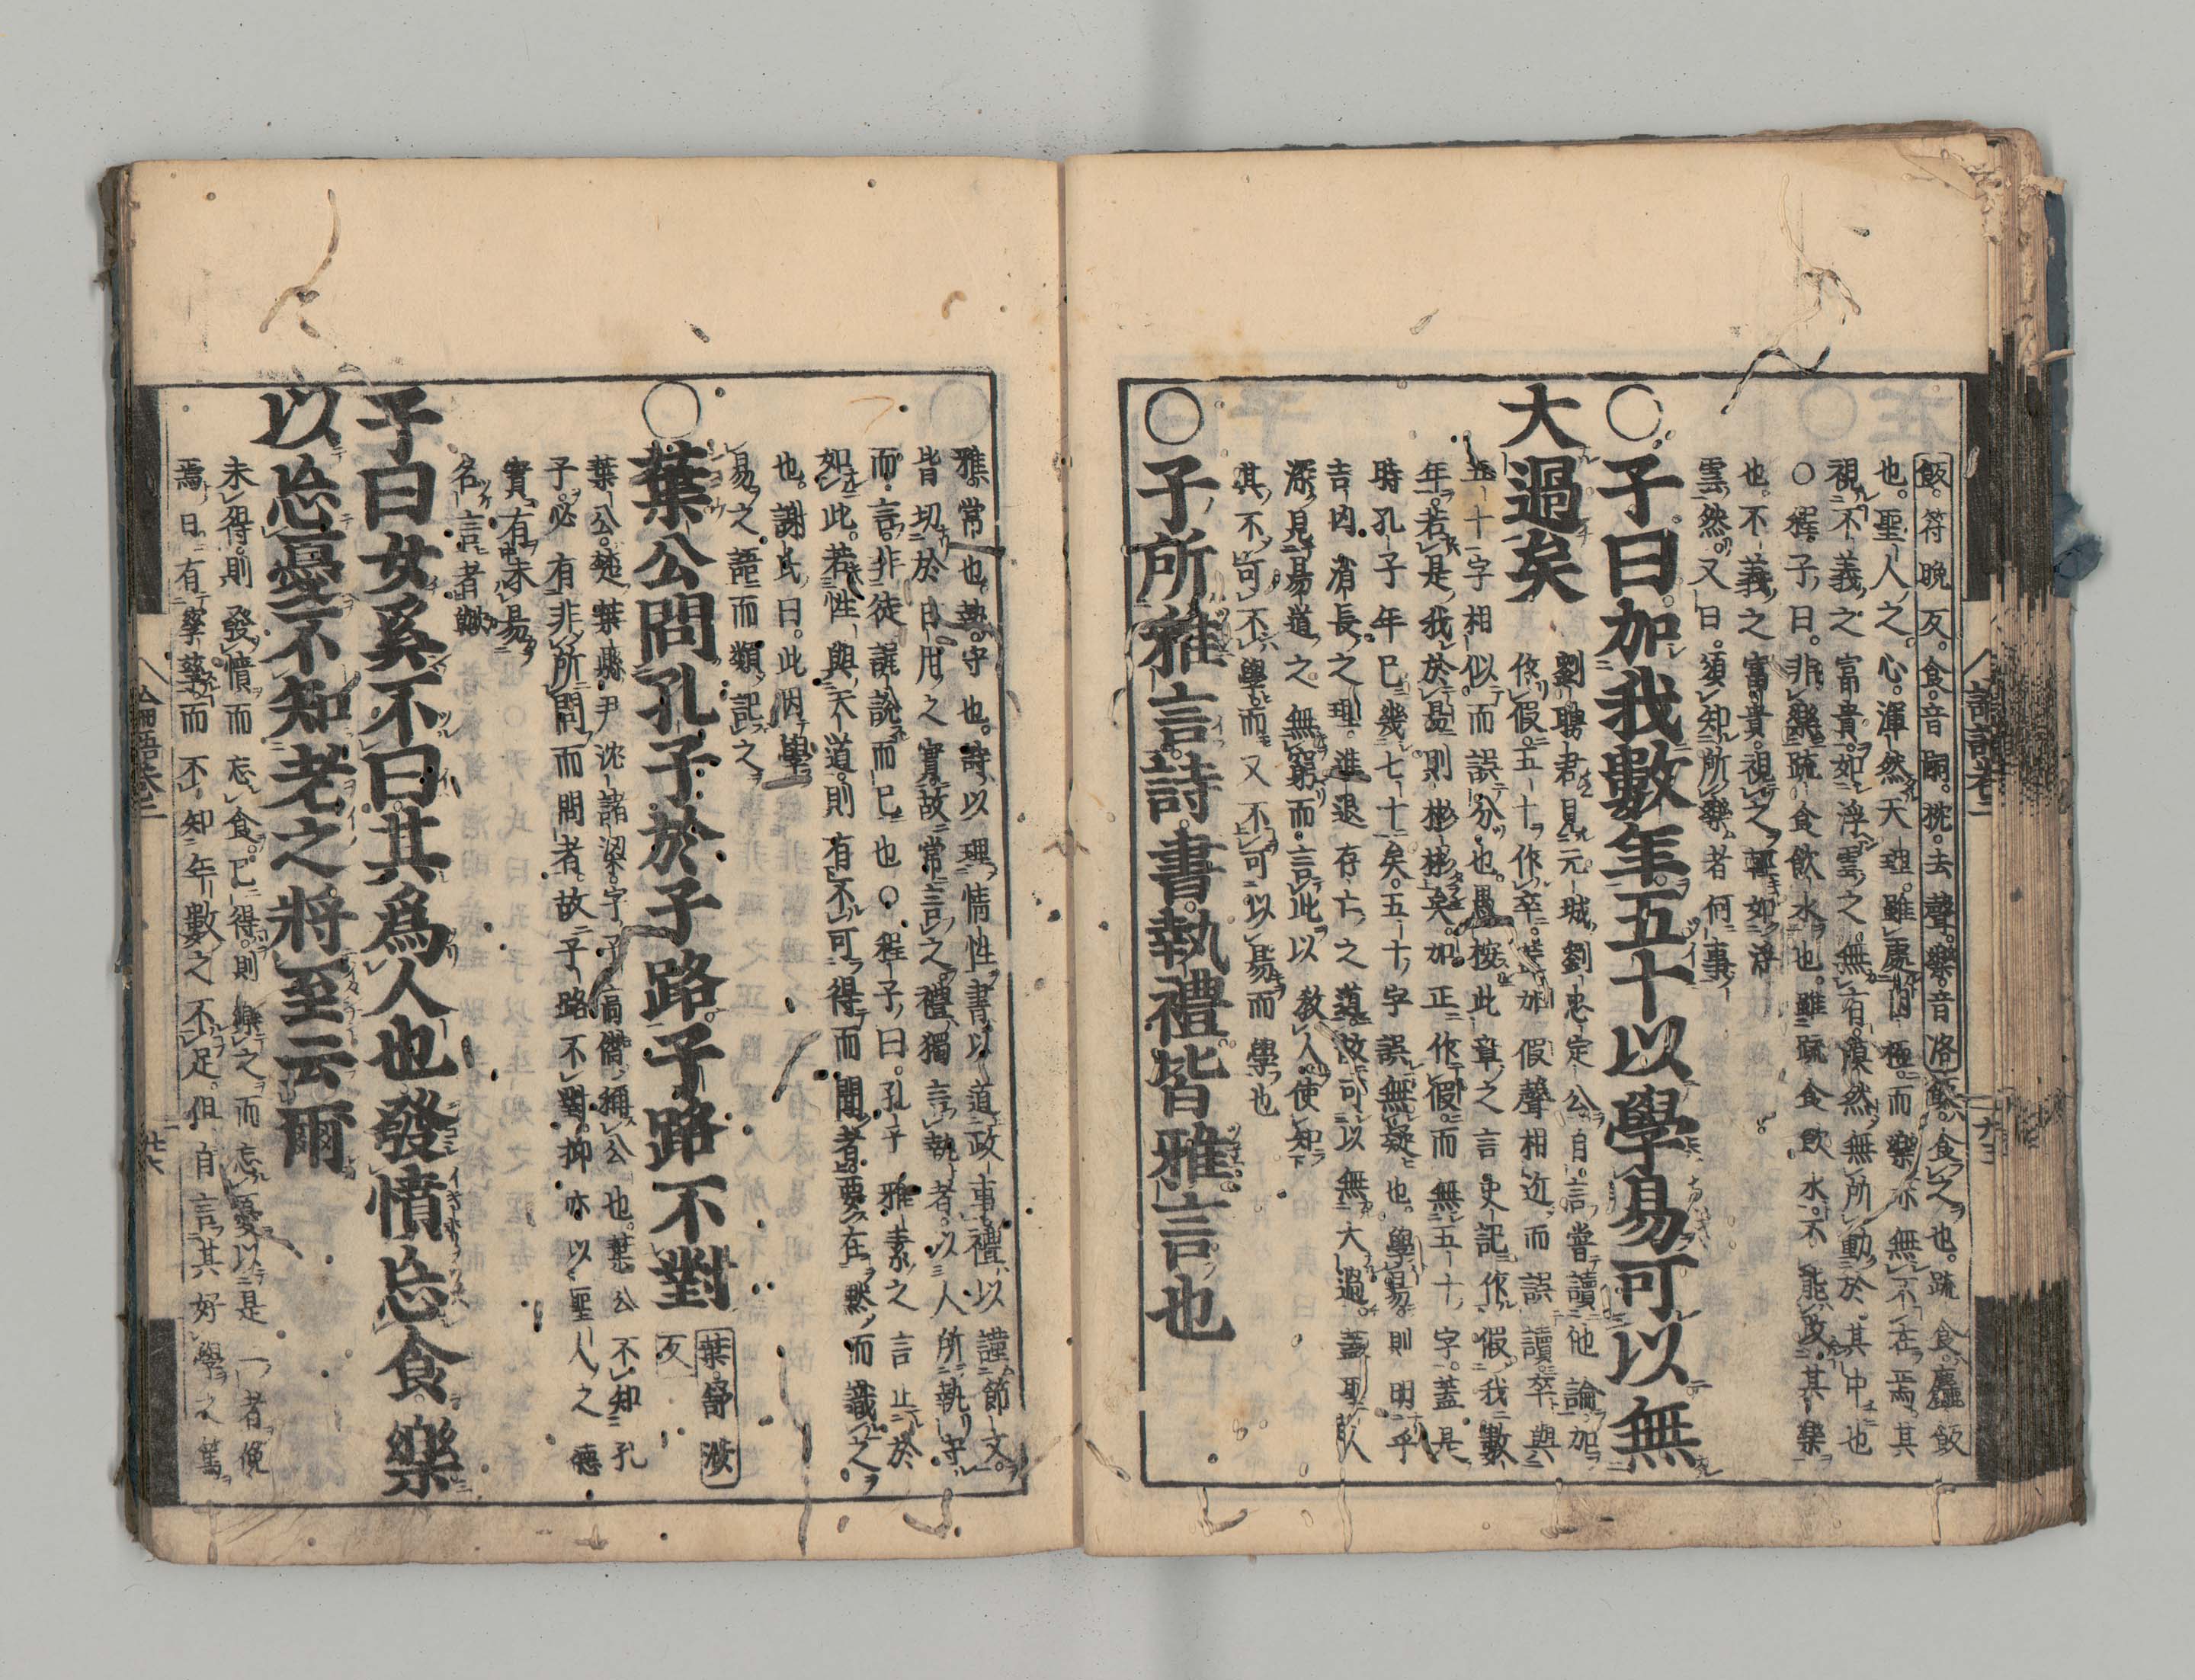 飯符晚反食音嗣枕去聲樂音洛飯食之也疏食麤飯
也聖人之心渾然天理雖處困極而樂亦無不在焉其
視不義之富貴如浮雲之無有漠然無所動於其中也
○程子曰非樂疏食飲水也雖疏食飲水不能改其樂
也不義之富貴視之輕如浮
雲然又曰須知所樂者何事
○子曰加我數年五十以學易可以無
大過矣
劉聘君見元城劉忠定公自言嘗讀他論加
作假五十作卒蓋加假聲相近而誤讀卒與
五十字相似而誤分也愚按此章之言史記作假我數
年若是我於易則彬彬矣加正作假而無五十字蓋是
時孔子年已幾七十矣五十字誤無疑也學易則明乎
吉凶消長之理進退存亡之道故可以無大過蓋聖人
深見易道之無窮而言此以教人使知
其不可不學而又不可以易而學也
○子所雅言詩書執禮皆雅言也
雅常也執守也詩以理情性書以道政事禮以謹節文
皆切於日用之實故常言之禮獨言執者以人所執守
而言非徒誦說而已也○程子曰孔子雅素之言止於
如此若性與天道則有不可得而聞者要在默而識之
也謝氏曰此因學
易之語而類記之
○葉公問孔子於子路子路不對
葉舒涉
反
葉公楚葉縣尹沈諸梁字子高僭稱公也葉公不知孔
子必有非所問而問者故子路不對抑亦以聖人之德
實有未易
名言者歟
子曰女奚不曰其爲人也發憤忘食樂
以忘憂不知老之將至云爾
未得則發憤而忘食已得則樂之而忘憂以是二者俛
焉日有孳孳而不知年數之不足但自言其好學之篤
論語卷二 廿六